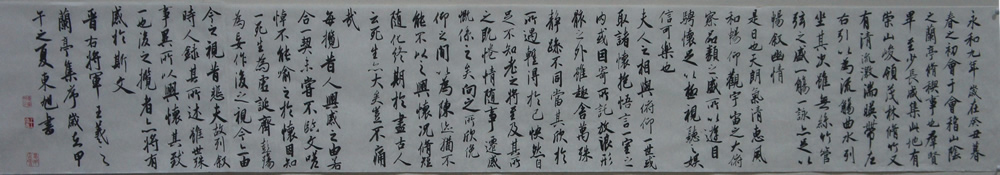 永和九年歲在癸丑暮
春之初會于會稽山陰
之蘭亭脩禊事也羣賢
畢至少長咸集此地有
崇山峻領茂林脩竹又
有清流激湍暎帶左
右引以為流觴曲水列
坐其次雖無絲竹管
弦之盛一觴一詠亦足以
暢敘幽情
是日也天朗氣清惠風
和暢仰觀宇宙之大俯
察品類之盛所以遊目
騁懷足以極視聽之娛
信可樂也
夫人之相與俯仰一世或
取諸懷抱悟言一室之
內或因寄所託放浪形
骸之外雖趣舍萬殊
靜躁不同當其欣於
所遇蹔得於己快然自
足不知老之將至及其所
之既惓情隨事遷感
慨係之矣向之所欣俛
仰之間以為陳迹猶不
能不以之興懷況脩短
隨化終期於盡古人
云死生亦大矣豈不痛
哉
每攬昔人興感之由若
合一契未嘗不臨文嗟
悼不能喻之於懷固知
一死生為虛誕齊彭殤
為妄作後之視今亦由
今之視昔悲夫故列敘
時人錄其所述雖世殊
事異所以興懷其致
一也後之攬者亦將有
感於斯文
晉右將軍王羲之
蘭亭集序歲在甲
午之夏東旭書